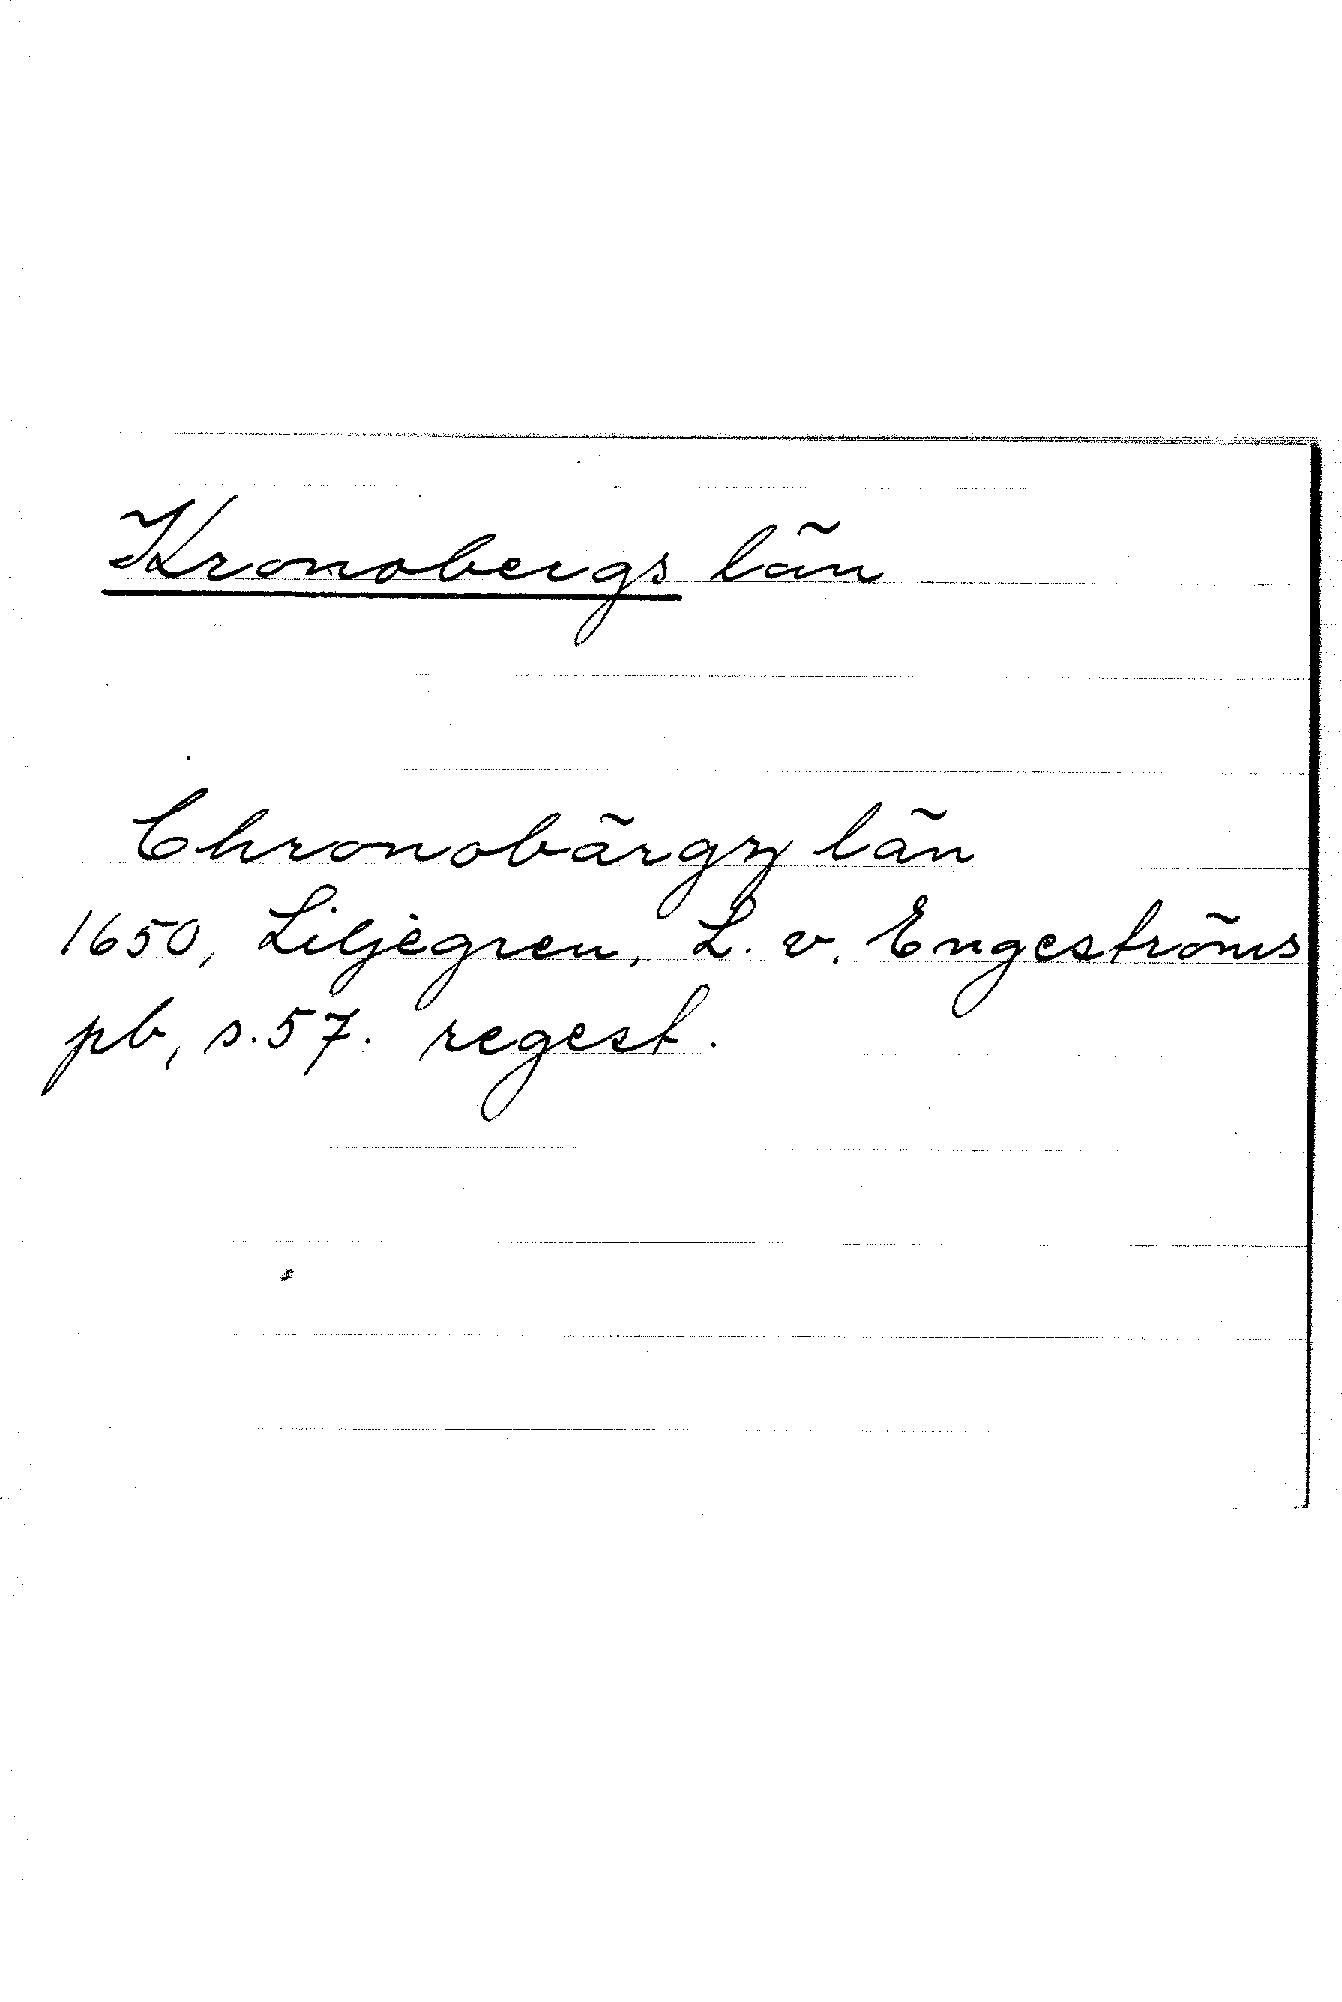 Kronobergs län
Chronobärgz län
1650, Liljegren, L. v. Engeströms
pb, s. 57. regest.